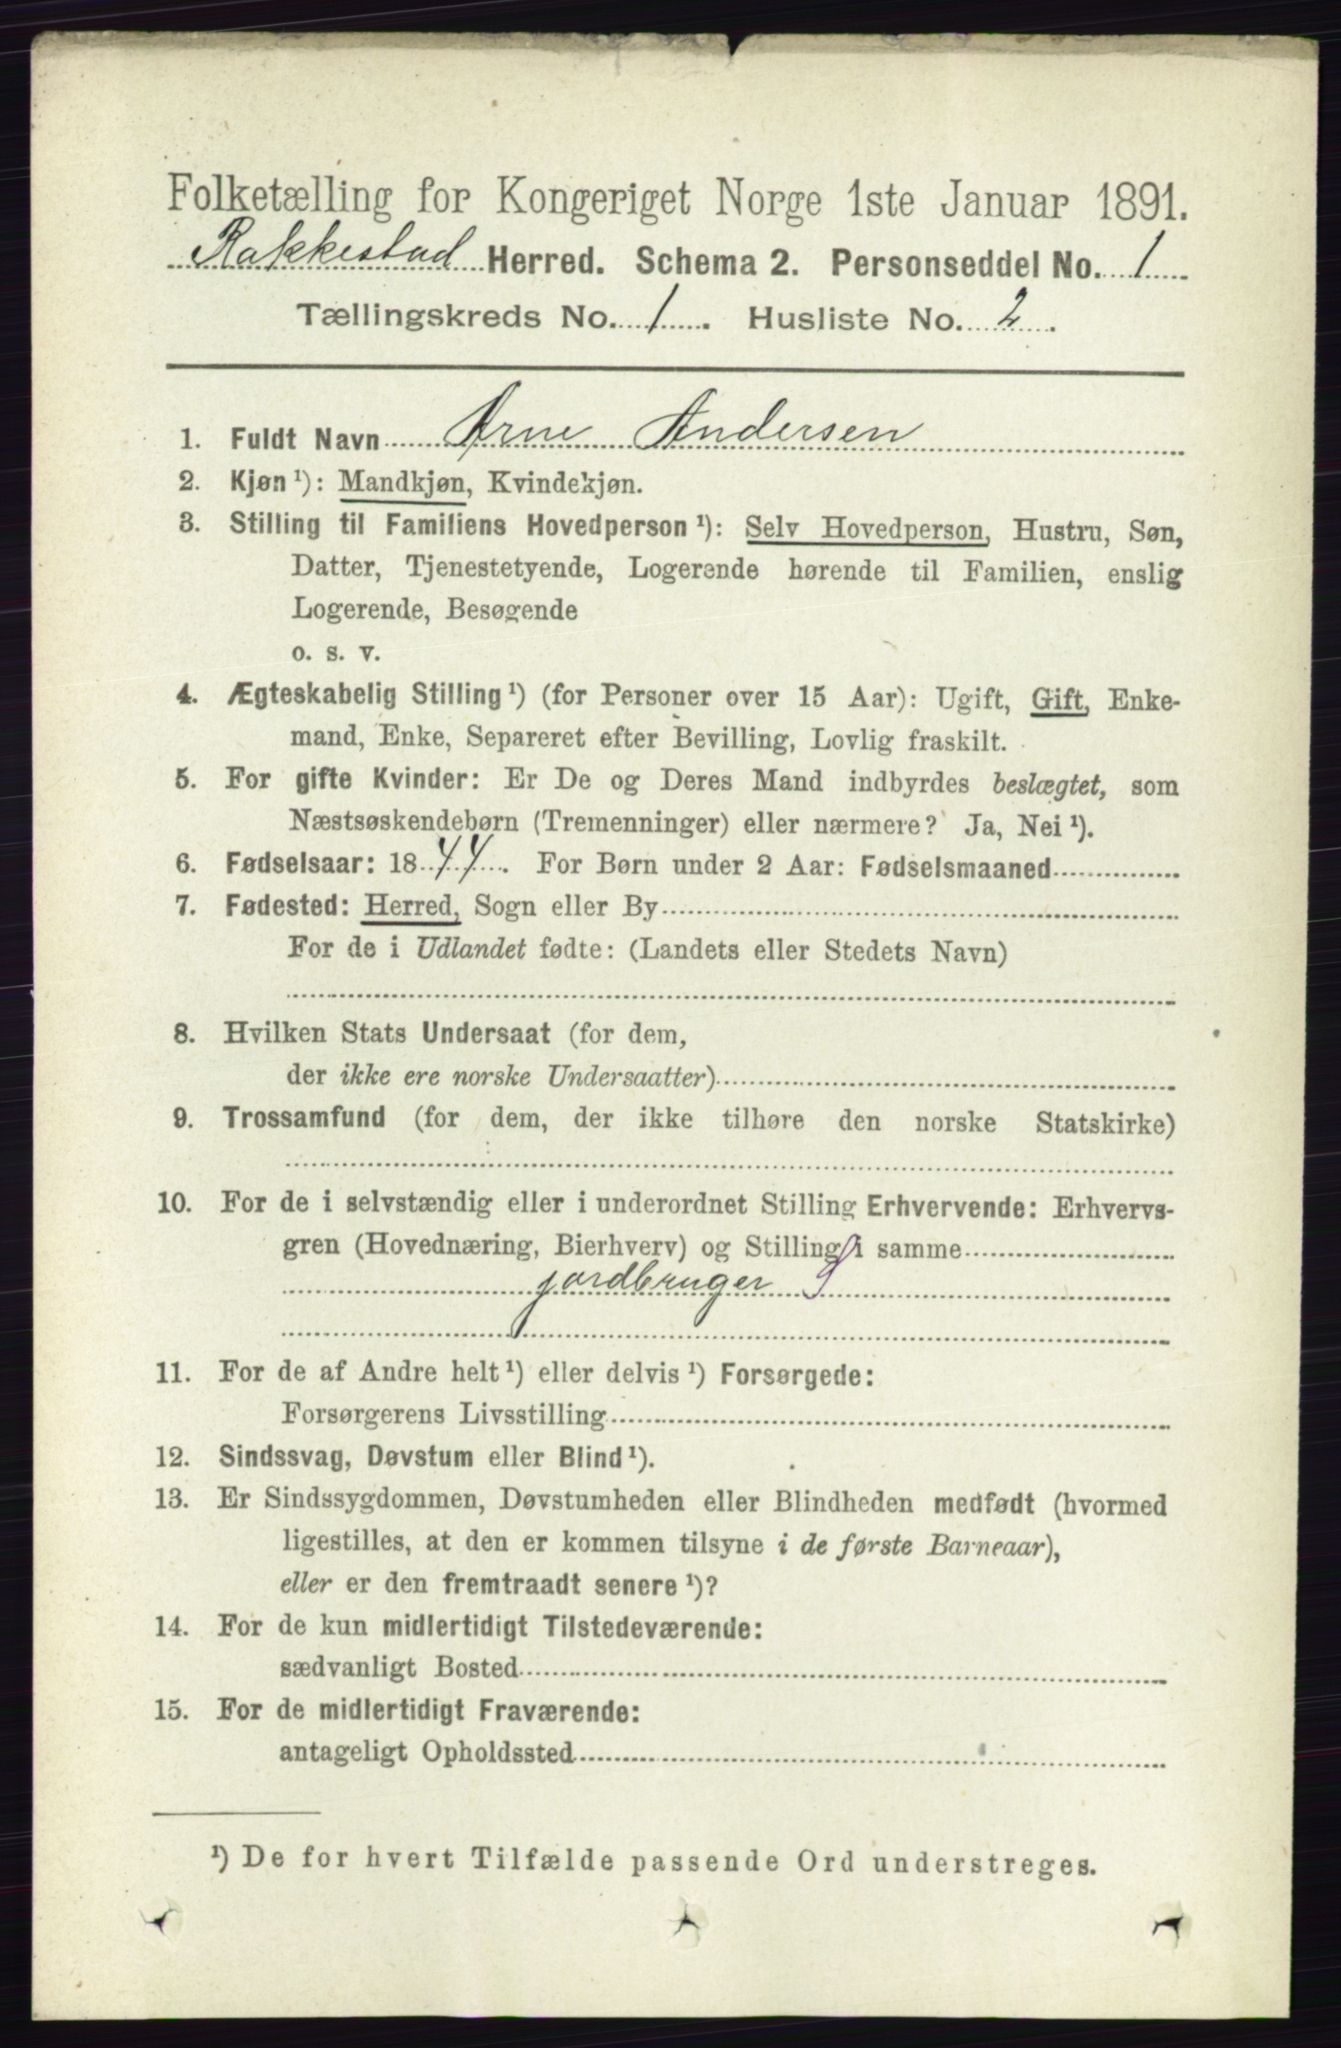 Folketælling for Kongeriget Norge 1ste Januar 1891.
Rakkestad Herred. Schema 2. Personseddel No. 1
Tællingskreds No. 1. Husliste No. 2.
1. Fuldt Navn Arne Andersen
2. Kjøn ¹): Mandkjøn, Kvindekjøn.
3. Stilling til Familiens Hovedperson ¹): Selv Hovedperson, Hustru, Søn,
Datter, Tjenestetyende, Logerende hørende til Familien, enslig
Logerende, Besøgende
o. s. v.
4. Ægteskabelig Stilling ¹) (for Personer over 15 Aar): Ugift, Gift, Enke-
mand, Enke, Separeret efter Bevilling, Lovlig fraskilt.
5. For gifte Kvinder: Er De og Deres Mand indbyrdes beslægtet, som
Næstsøskendebørn (Tremenninger) eller nærmere? Ja, Nei ¹).
6. Fødselsaar: 1844. For Børn under 2 Aar: Fødselsmaaned
7. Fødested: Herred, Sogn eller By
For de i Udlandet fødte: (Landets eller Stedets Navn)
8. Hvilken Stats Undersaat (for dem,
der ikke ere norske Undersaatter)
9. Trossamfund (for dem, der ikke tilhøre den norske Statskirke)
10. For de i selvstændig eller i underordnet Stilling Erhvervende: Erhvervs-
gren (Hovednæring, Bierhverv) og Stilling i samme
jordbruger S
11. For de af Andre helt ¹) eller delvis ¹) Forsørgede:
Forsørgerens Livsstilling
12. Sindssvag, Døvstum eller Blind ¹).
13. Er Sindssygdommen, Døvstumheden eller Blindheden medfødt (hvormed
ligestilles, at den er kommen tilsyne i de første Barneaar),
eller er den fremtraadt senere ¹)?
14. For de kun midlertidigt Tilstedeværende:
sædvanligt Bosted
15. For de midlertidigt Fraværende:
antageligt Opholdssted
¹) De for hvert Tilfælde passende Ord understreges.